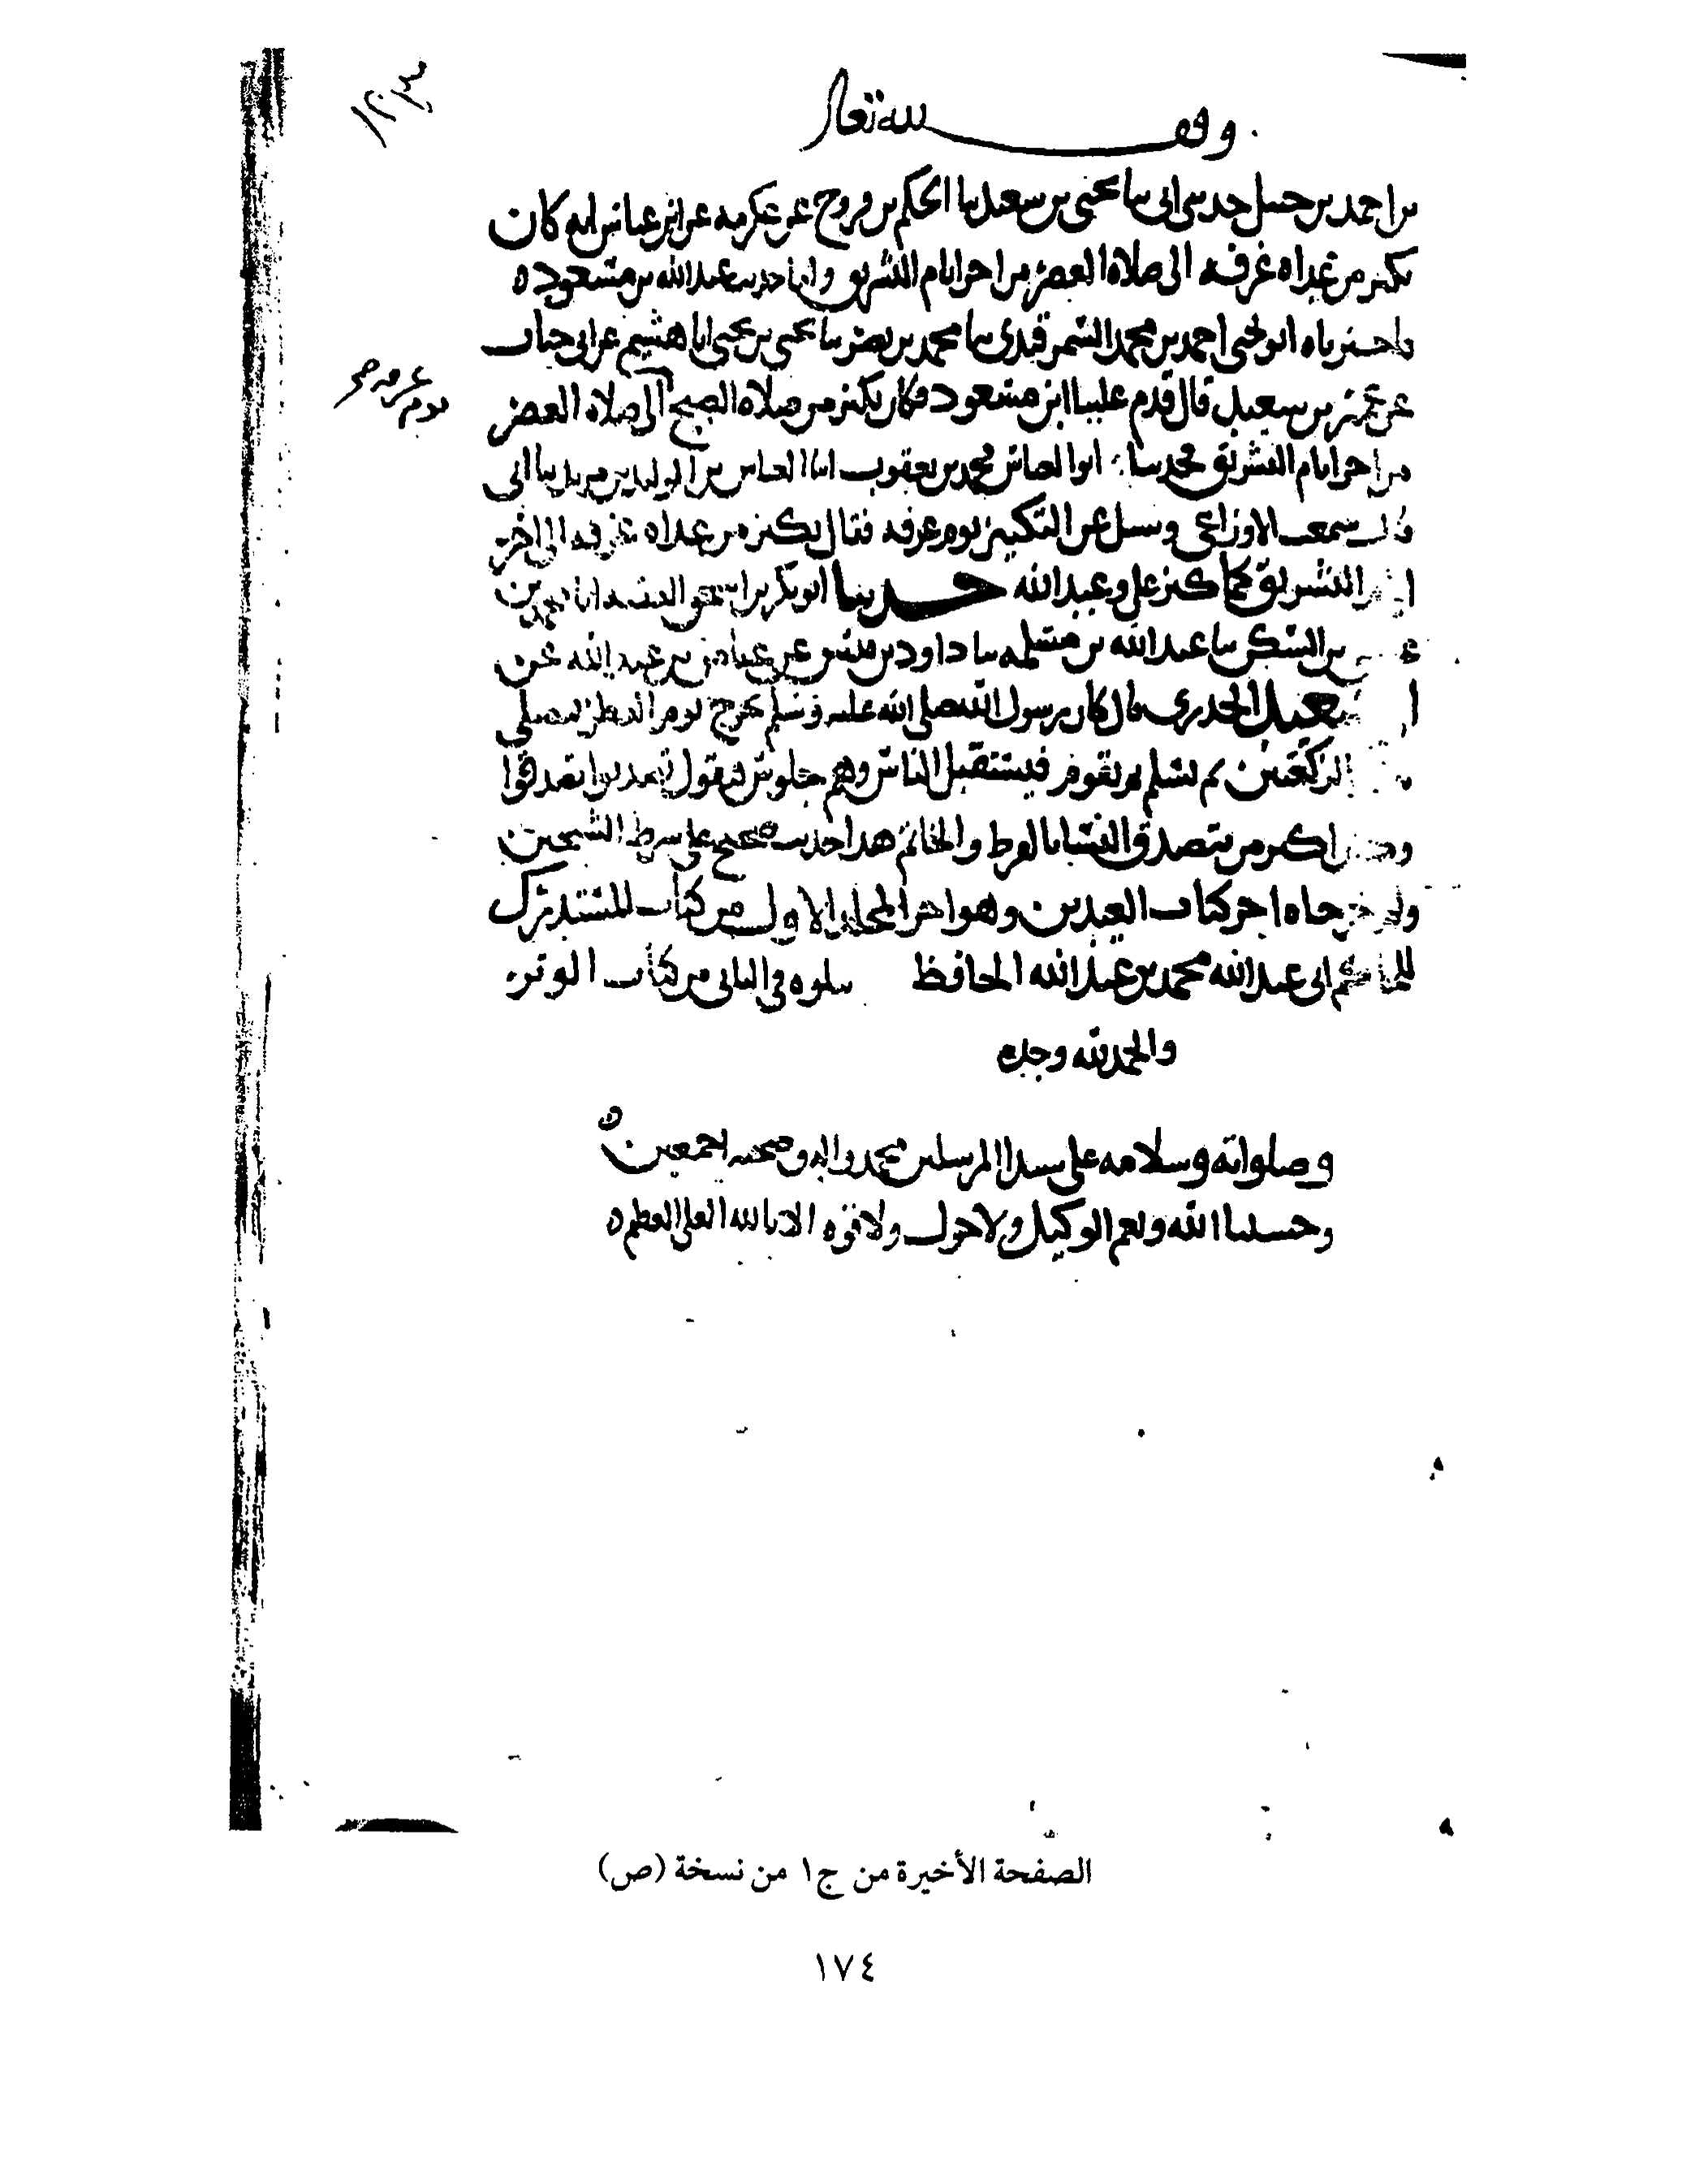 وقف لله تعالى
بن احمد بن حنبل حدثنى ابى ثنا يحيى بن سعيد ثنا الحكم بن فروخ عن عكرمه عن ابن عباس انه كان
يكبر من غداه عرفه الى صلاه العصر من اخر ايام التشريق واما حديث عبد الله بن مسعود
فاخبرناه ابو يحيى احمد بن محمد السمرقندى ثنا محمد بن نصر ثنا يحيى بن يحيى انا هشيم عن ابى جناب
عن عمير بن سعيد قال قدم علينا ابن مسعود فكان يكبر من صلاه الصبح الى صلاه العصر
يوم عرفه صح
من اخر ايام التشريق حدثنا ابو العباس محمد بن يعقوب انا العباس بن الوليد بن مزيد ثنا ابى
قال سمعت الاوزاعى وسئل عن التكبير يوم عرفه فقال يكبر من غداه عرفه الى اخر
ايام التشريق كما كبر على وعبد الله حدثنا ابو بكر بن اسحق الفقيه انا محمد بن
بن السكن ثنا عبد الله بن مسلمه ثنا داود بن قيس عن عياض بن عبد الله عن
ابى سعيد الخدرى قال كان رسول الله صلى الله عليه وسلم يخرج يوم الفطر فيصلى
الركعتين ثم يسلم ثم يقوم فيستقبل الناس وهم جلوس فيقول تصدقوا تصدقوا
وكان اكثر من يتصدق النسا بالقرط والخاتم هذا حديث صحيح على شرط الشيخين
ولم يخرجاه اخر كتاب العيدين وهو اخر المجلد الاول من كتاب المستدرك
للحاكم ابى عبد الله محمد بن عبد الله الحافظ يتلوه فى الثانى من كتاب الوتر
والحمد لله وحده
وصلواته وسلامه على سيد المرسلين محمد واله وصحبه اجمعين
وحسبنا الله ونعم الوكيل ولا حول ولا قوه الا بالله العلى العظيم
الصفحة الأخيرة من ج١ من نسخة (ص)
١٧٤